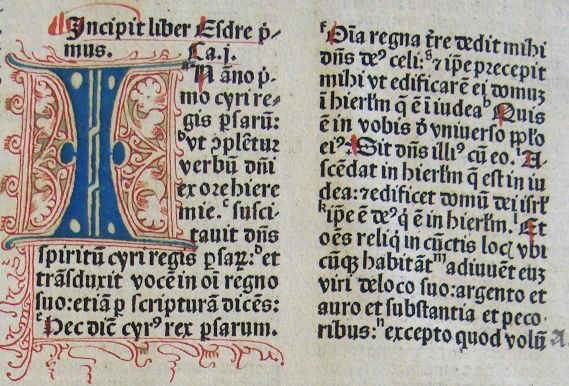 Incipit liber Esdre p̄-
mus. Ca. j.
IN ãno p̄-
mo cyri re-
gis ꝑsarũ:
b vt ↄplẽtur
verbũ dñi
ex ore hiere
mie. c susci-
tauit dñs
spiritũ cyri regis ꝑsaꝝ: d et
trãsduxit vocẽ in oĩ regno
suo: etiã ꝑ scripturã dicẽs:
e Hec dic̃ cyr⁹ rex ꝑsarum.
f Oĩa regna tr̃re dedit mihi
dñs de⁹ celi: g ⁊ ip̃e precepit
mihi vt edificarẽ ei domuȝ
ĩ hierl̃m q̃ ẽ ĩ iudea h Quis
ẽ in vobis ð vniuerso pp̃lo
ei⁹? i Sit dñs illi⁹ cũ eo. A-
scẽdat in hierl̃m q̃ est in iu
dea: ⁊ edificet domũ dei isrl̃
k ip̃e ẽ de⁹ q̃ ẽ in hierl̃m. l Et
oẽs reliq̃ in cũctis locꝭ vbi
cũqꝫ habitãt m adiuuẽt euȝ
viri de loco suo: argento et
auro et substantia et peco-
ribus: n excepto quod volũ